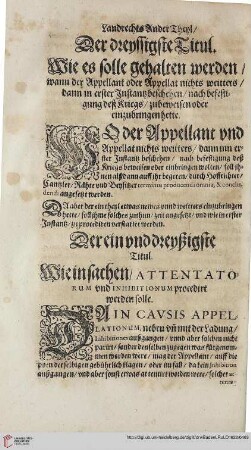 Landrechts Ander Theyl/
Der dreyssigste Titul.
Wie es solle gehalten werden/
wann der Appellant oder Appellat nichts weiters/
dann in erster Instantz beschehen/ nach befesti-
gung deß Kriegs/ zubeweisen oder
einzubringen hette.
WO der Appellant vnd
Appellat nichts weiters/ dann in er-
ster Instantz beschehen/ nach befestigung deß
Kriegs beweisen oder einbringen wolten/ soll jh-
nen alßdann auff jhr begeren/ durch Hoffrichter/
Cantzler/ Räthe vnd Beysitzer terminus
angesetzt werden.
Da aber der ein theil etwas newes vnd weiters einzubringen
hette/ soll jhme solches zuthun/ zeit angesetzt/ vnd wie in erster
Instantz/ zu procediern verstattet werden.
Der ein vnd dreyßigste
Titul.
Wie in sachen/ ATTENTATO-
RUM vnd INHIBITIONUM procedirt
werden solle.
DA IN CAVSIS APPEL-
LATIONUM, neben vnd mit der Ladung/
Inhibitiones außgangen/ vnnd aber solchen nicht
parirt/ sonder denselben zugegen was fürgenom-
men worden were/ mag der Appellant/ auff die
pœn derselbigen gebührlich klagen/ oder an fall/ da kein Inhibition
außgangen/ vnd aber sonst etwas attentirt worden were/ solches